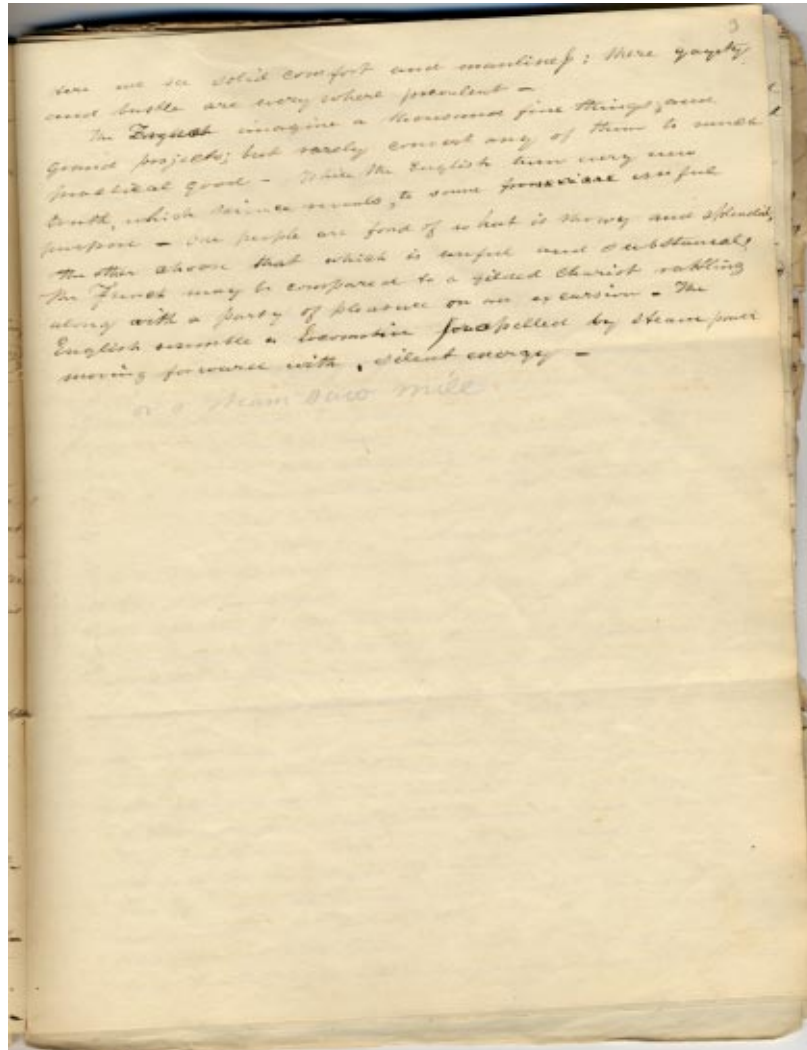 3
here we see solid comfort and manliness; there gayety
and bustle are every where prevalent –
The English imagine a thousand fine things, and
grand projects; but rarely convert any of them to much
practical good – While the English turn every new
truth, which science reveals, to some useful
purpose – One people are fond of what is showy and splendid,
the other choose that which is useful and substantial,
The French may be compared to a gilded Chariot rattling
along with a party of pleasure on an excursion – The
English resemble a Locomotive propelled by steam power
moving forward with silent energy –
or a steam saw mill